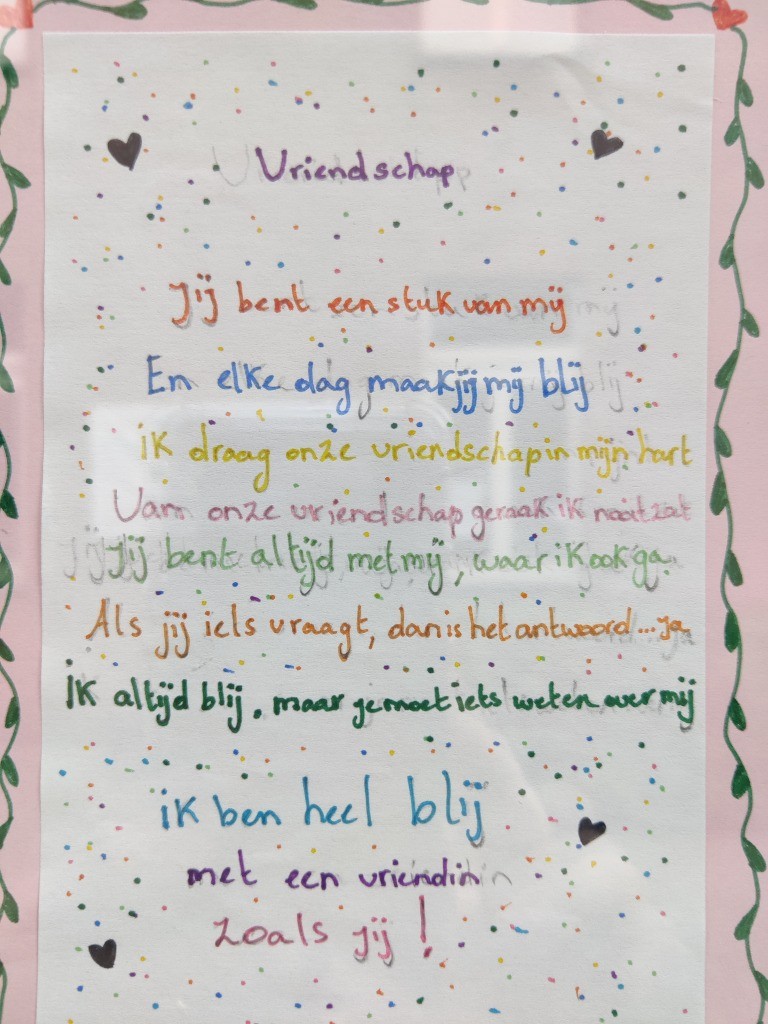 Vriendschap
Jij bent een stuk van mij
En elke dag maak jij mij blij
ik draag onze vriendschap in mijn hart
Van onze vriendschap geraak ik nooit zat
Jij bent altijd met mij, waar ik ook ga.
Als jij iets vraagt, dan is het antwoord... ja
ik altijd blij, maar je moet iets weten over mij
ik ben heel blij
met een vriendin
zoals jij!